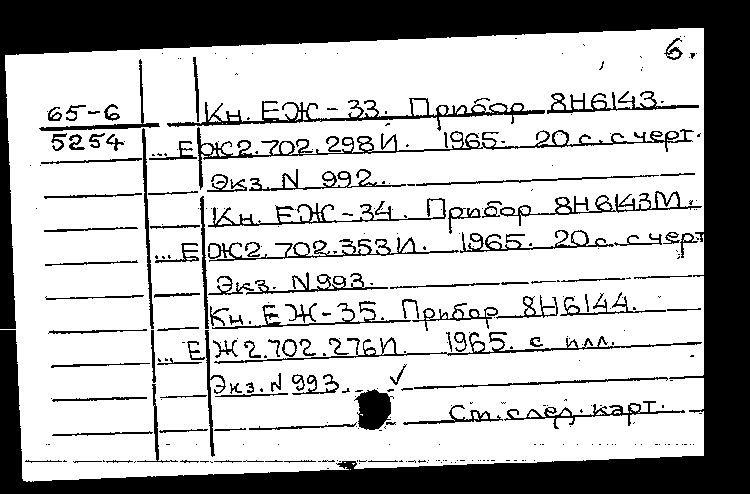 6.
65-6 Кн. ЕЖ-33. Прибор 8Н6143.
5254 ... ЕЖ2.702.298И. 1965. 20 с. с черт.
Экз. N 992.
Кн. ЕЖ-34. Прибор 8Н6143М.
... ЕЖ2.702.353И. 1965. 20 с. с черт
Экз. N993.
Кн. ЕЖ-35. Прибор 8Н6144.
... ЕЖ2.702.276И. 1965. с илл.
Экз. N 993. ✓
См. след. карт.